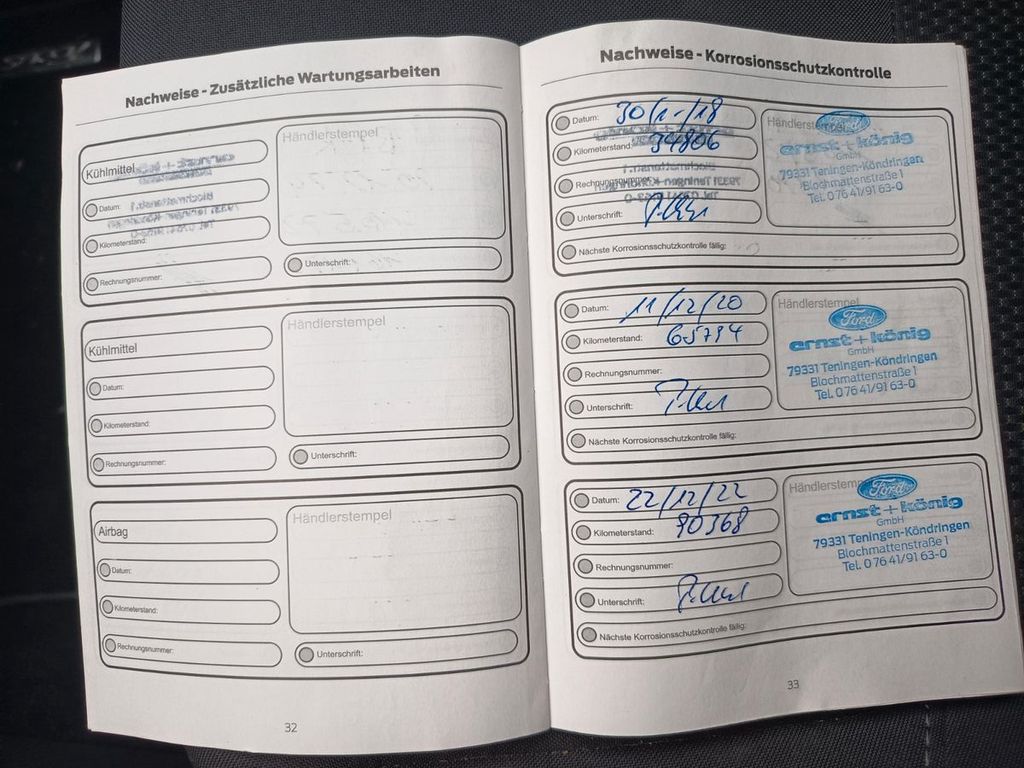 Nachweise - Zusätzliche Wartungsarbeiten
Kühlmittel
Händlerstempel
Datum:
Kilometerstand:
Rechnungsnummer:
Unterschrift:
Kühlmittel
Händlerstempel
Datum:
Kilometerstand:
Rechnungsnummer:
Unterschrift:
Airbag
Händlerstempel
Datum:
Kilometerstand:
Rechnungsnummer:
Unterschrift:
32
Nachweise - Korrosionsschutzkontrolle
Datum:
Kilometerstand: 34806
Rechnungsnummer:
Unterschrift:
Nächste Korrosionsschutzkontrolle fällig:
Händlerstempel
Ford
ernst + könig
GmbH
79331 Teningen-Köndringen
Blochmattenstraße 1
Tel. 0 76 41/91 63-0
Datum: 11/12/20
Kilometerstand: 65794
Rechnungsnummer:
Unterschrift:
Nächste Korrosionsschutzkontrolle fällig:
Händlerstempel
Ford
ernst + könig
GmbH
79331 Teningen-Köndringen
Blochmattenstraße 1
Tel. 0 76 41/91 63-0
Datum: 22/12/22
Kilometerstand: 90368
Rechnungsnummer:
Unterschrift:
Nächste Korrosionsschutzkontrolle fällig:
Händlerstemp
Ford
ernst + könig
GmbH
79331 Teningen-Köndringen
Blochmattenstraße 1
Tel. 0 76 41/91 63-0
33